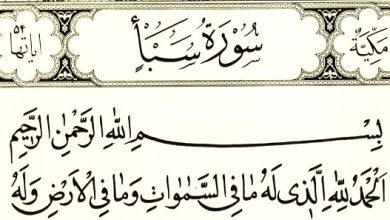 مكية سورة سبأ آياتها ٥٤
بِسْمِ اللهِ الرَّحْمٰنِ الرَّحِيمِ
اَلْحَمْدُ لِلّٰهِ الَّذٖى لَهُ مَا فِى السَّمٰوَاتِ وَمَا فِى الْاَرْضِ وَلَهُ